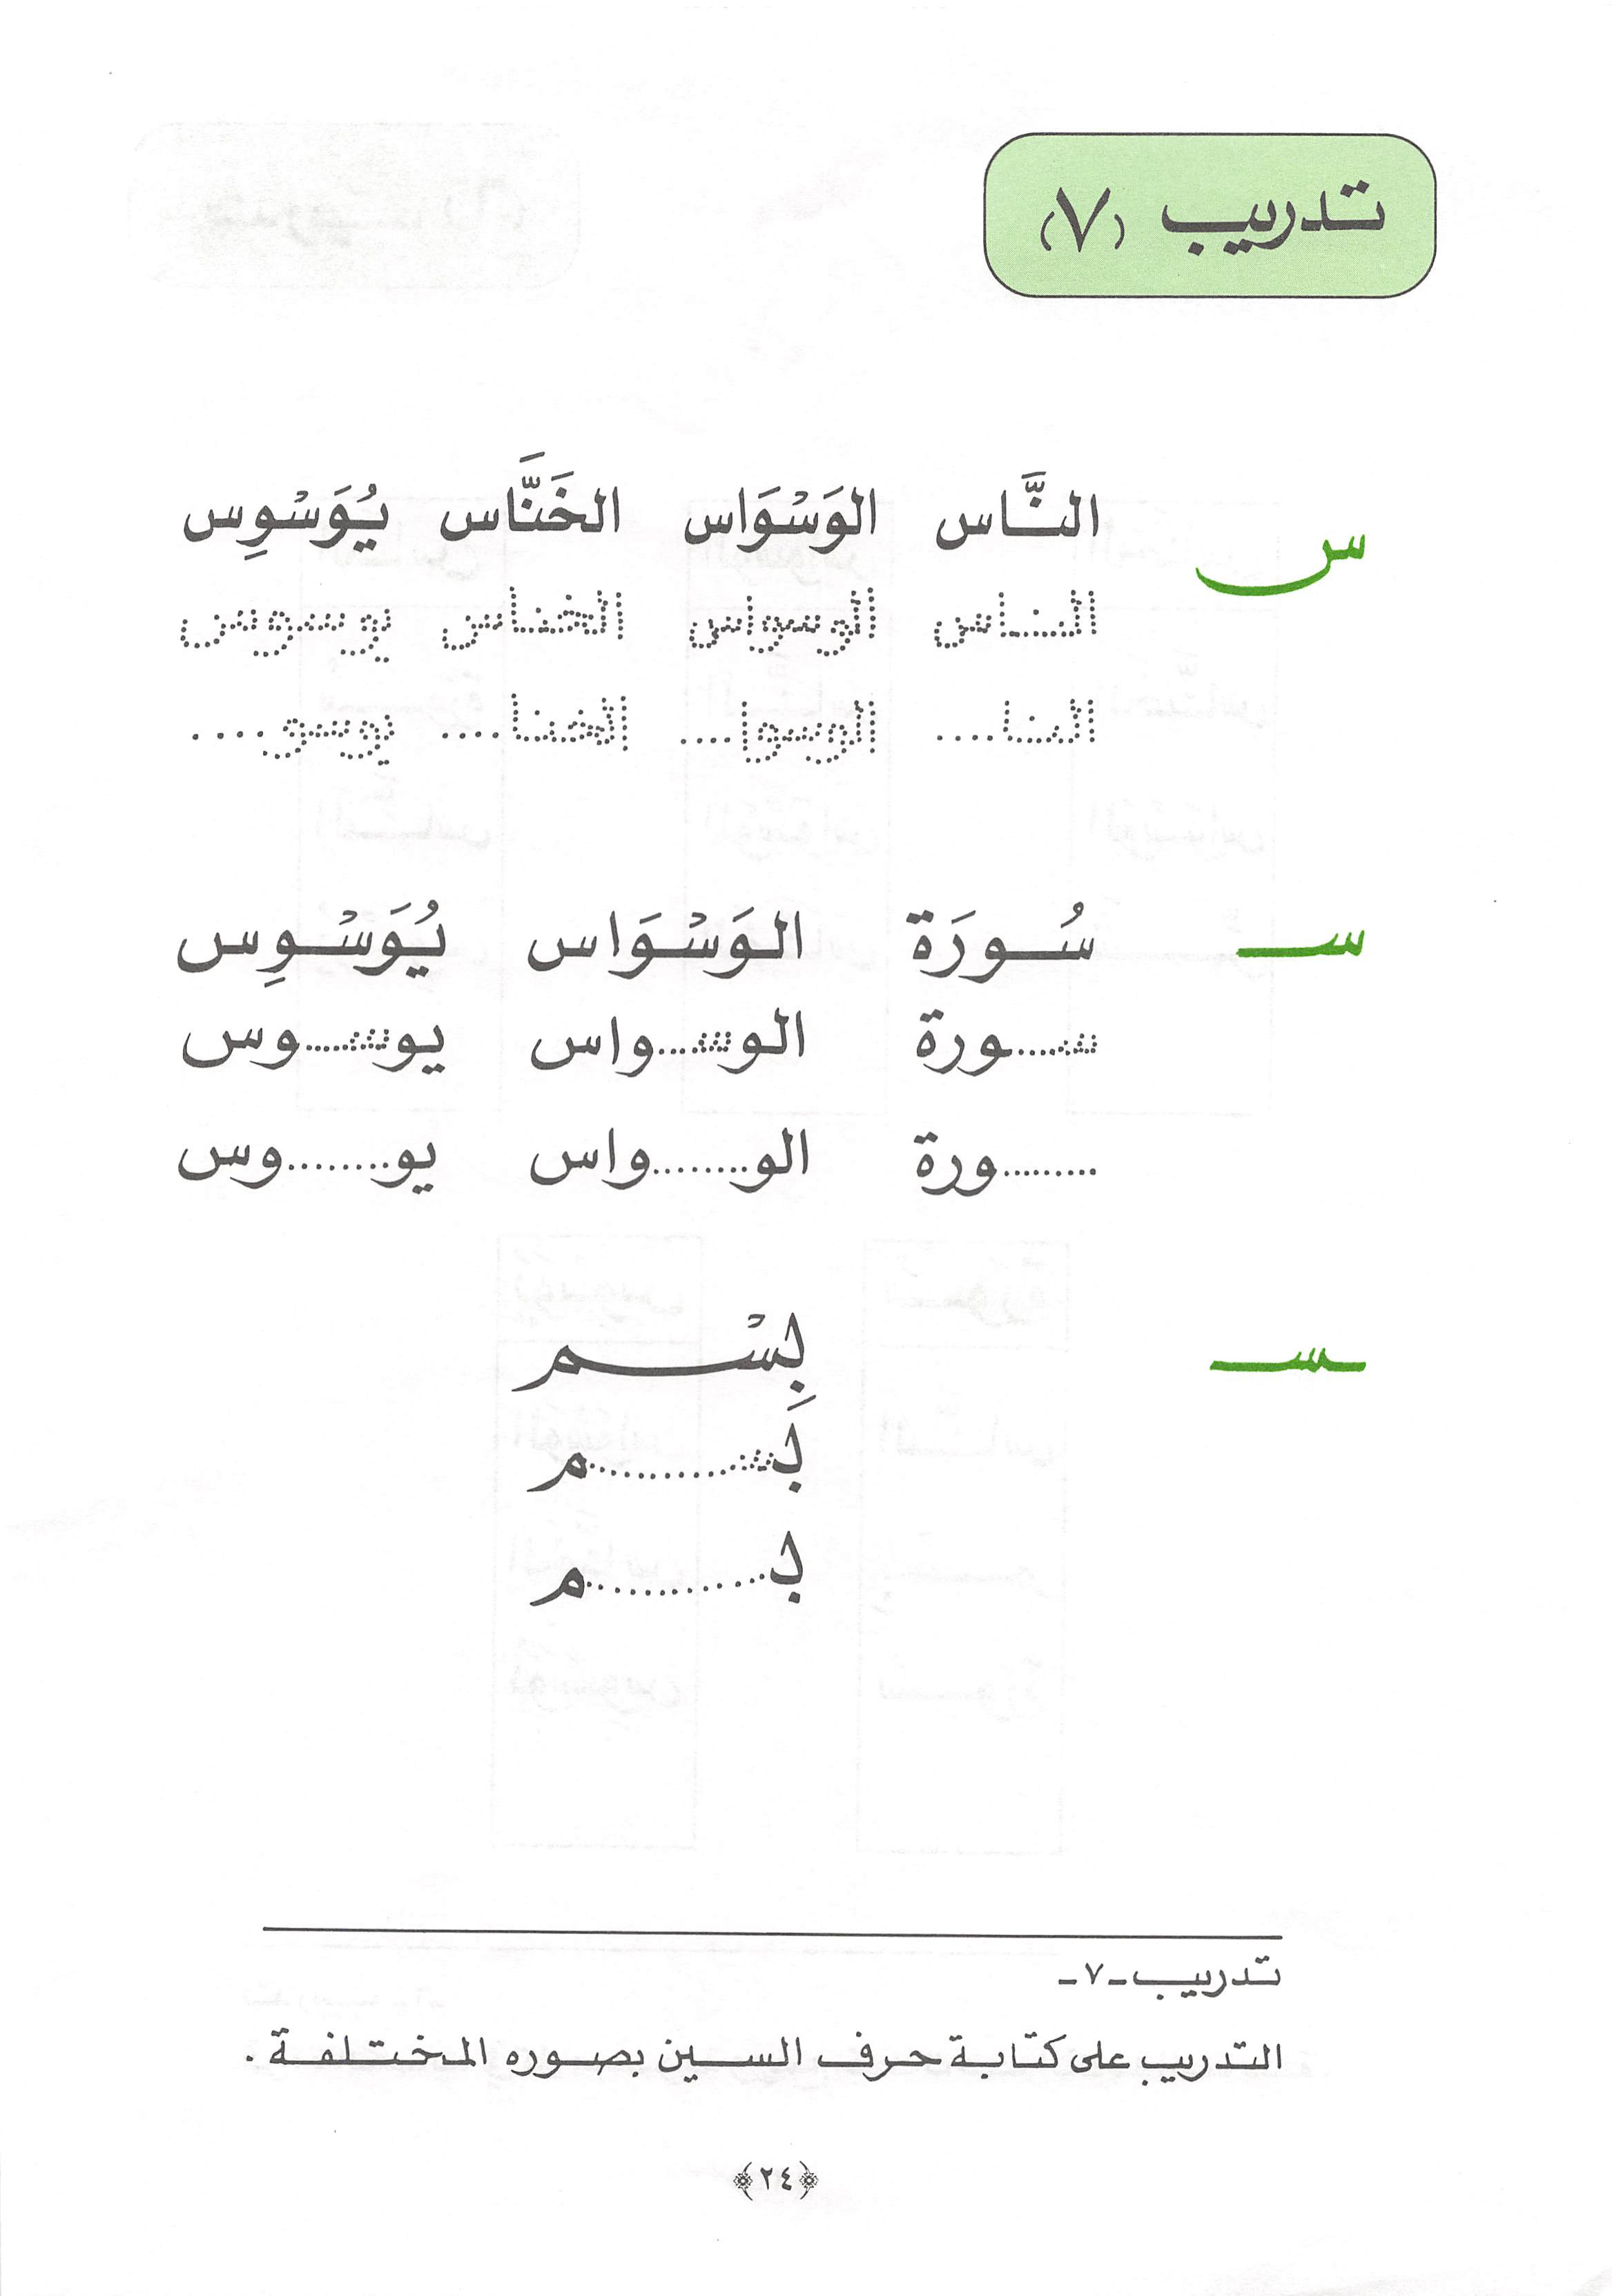 تدريب (٧)
س النَّاس الوَسْوَاس الخَنَّاس يُوَسْوِس
الناس الوسواس الخناس يوسوس
النا.... الوسوا.... الخنا.... يوسو....
سـ سُـورَة الوَسْـوَاس يُوَسْـوِس
سـورة الوسـواس يوسـوس
.........ورة الو.........واس يو.........وس
ـسـ بِسْـم
بسـم
بـ............م
تدريب ـ٧ـ
التدريب على كتابة حرف السين بصوره المختلفة .
﴿٢٤﴾